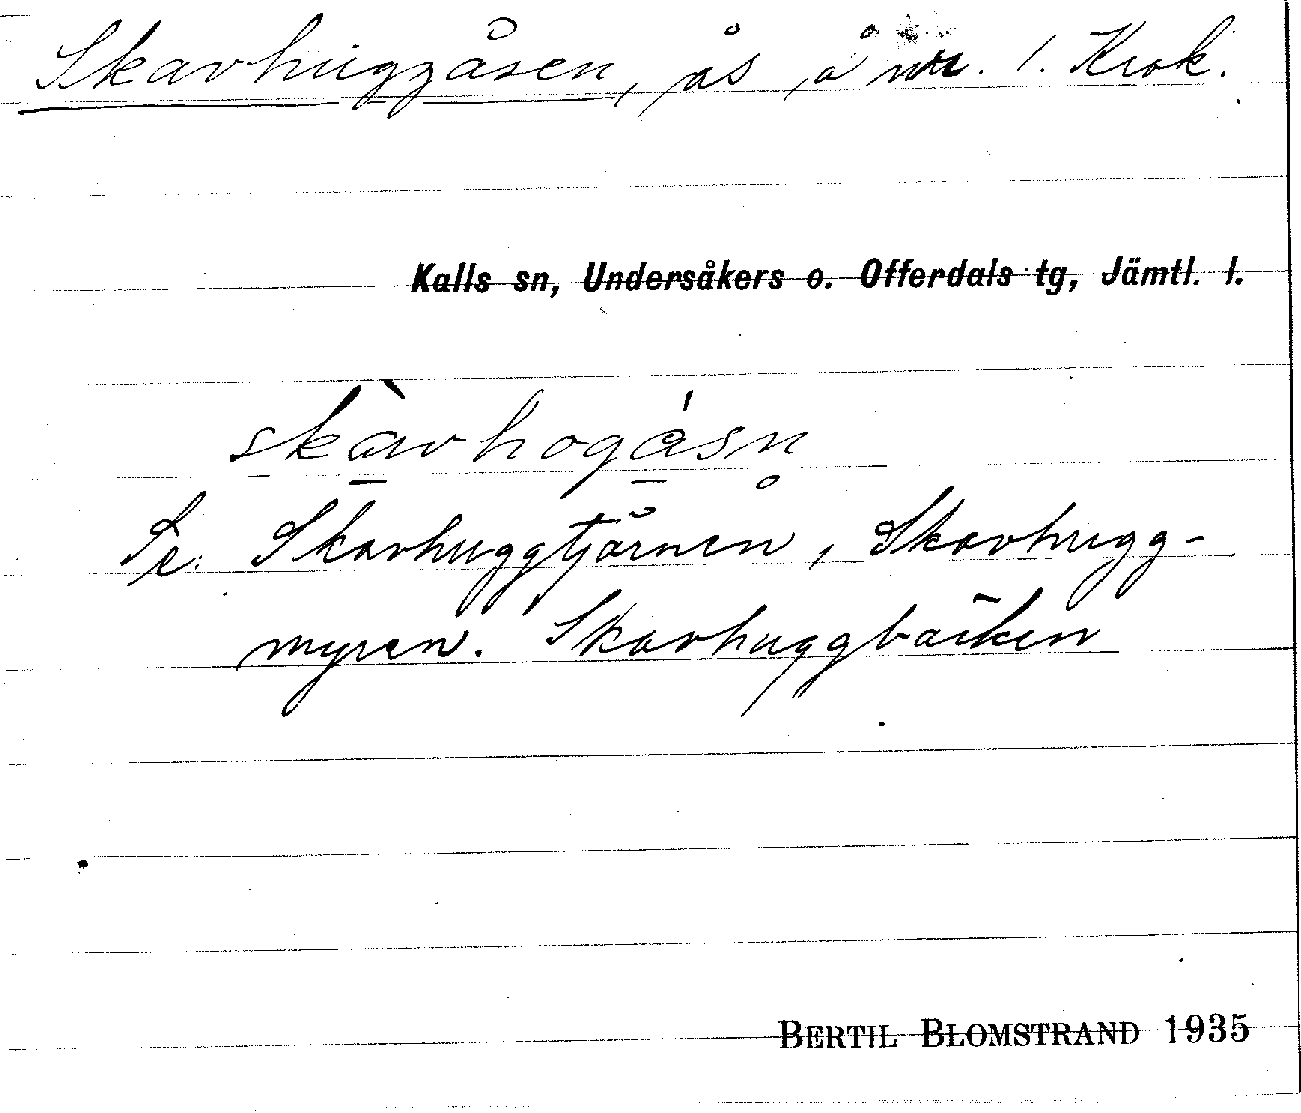 Skavhuggåsen, ås å nr. 1. Krok.
Kalls sn, Undersåkers o. Offerdals tg, Jämtl. l.
skàvhogåsn
Se: Skavhuggtjärnen, Skavhugg-
myren. Skavhuggbäcken
BERTIL BLOMSTRAND 1935